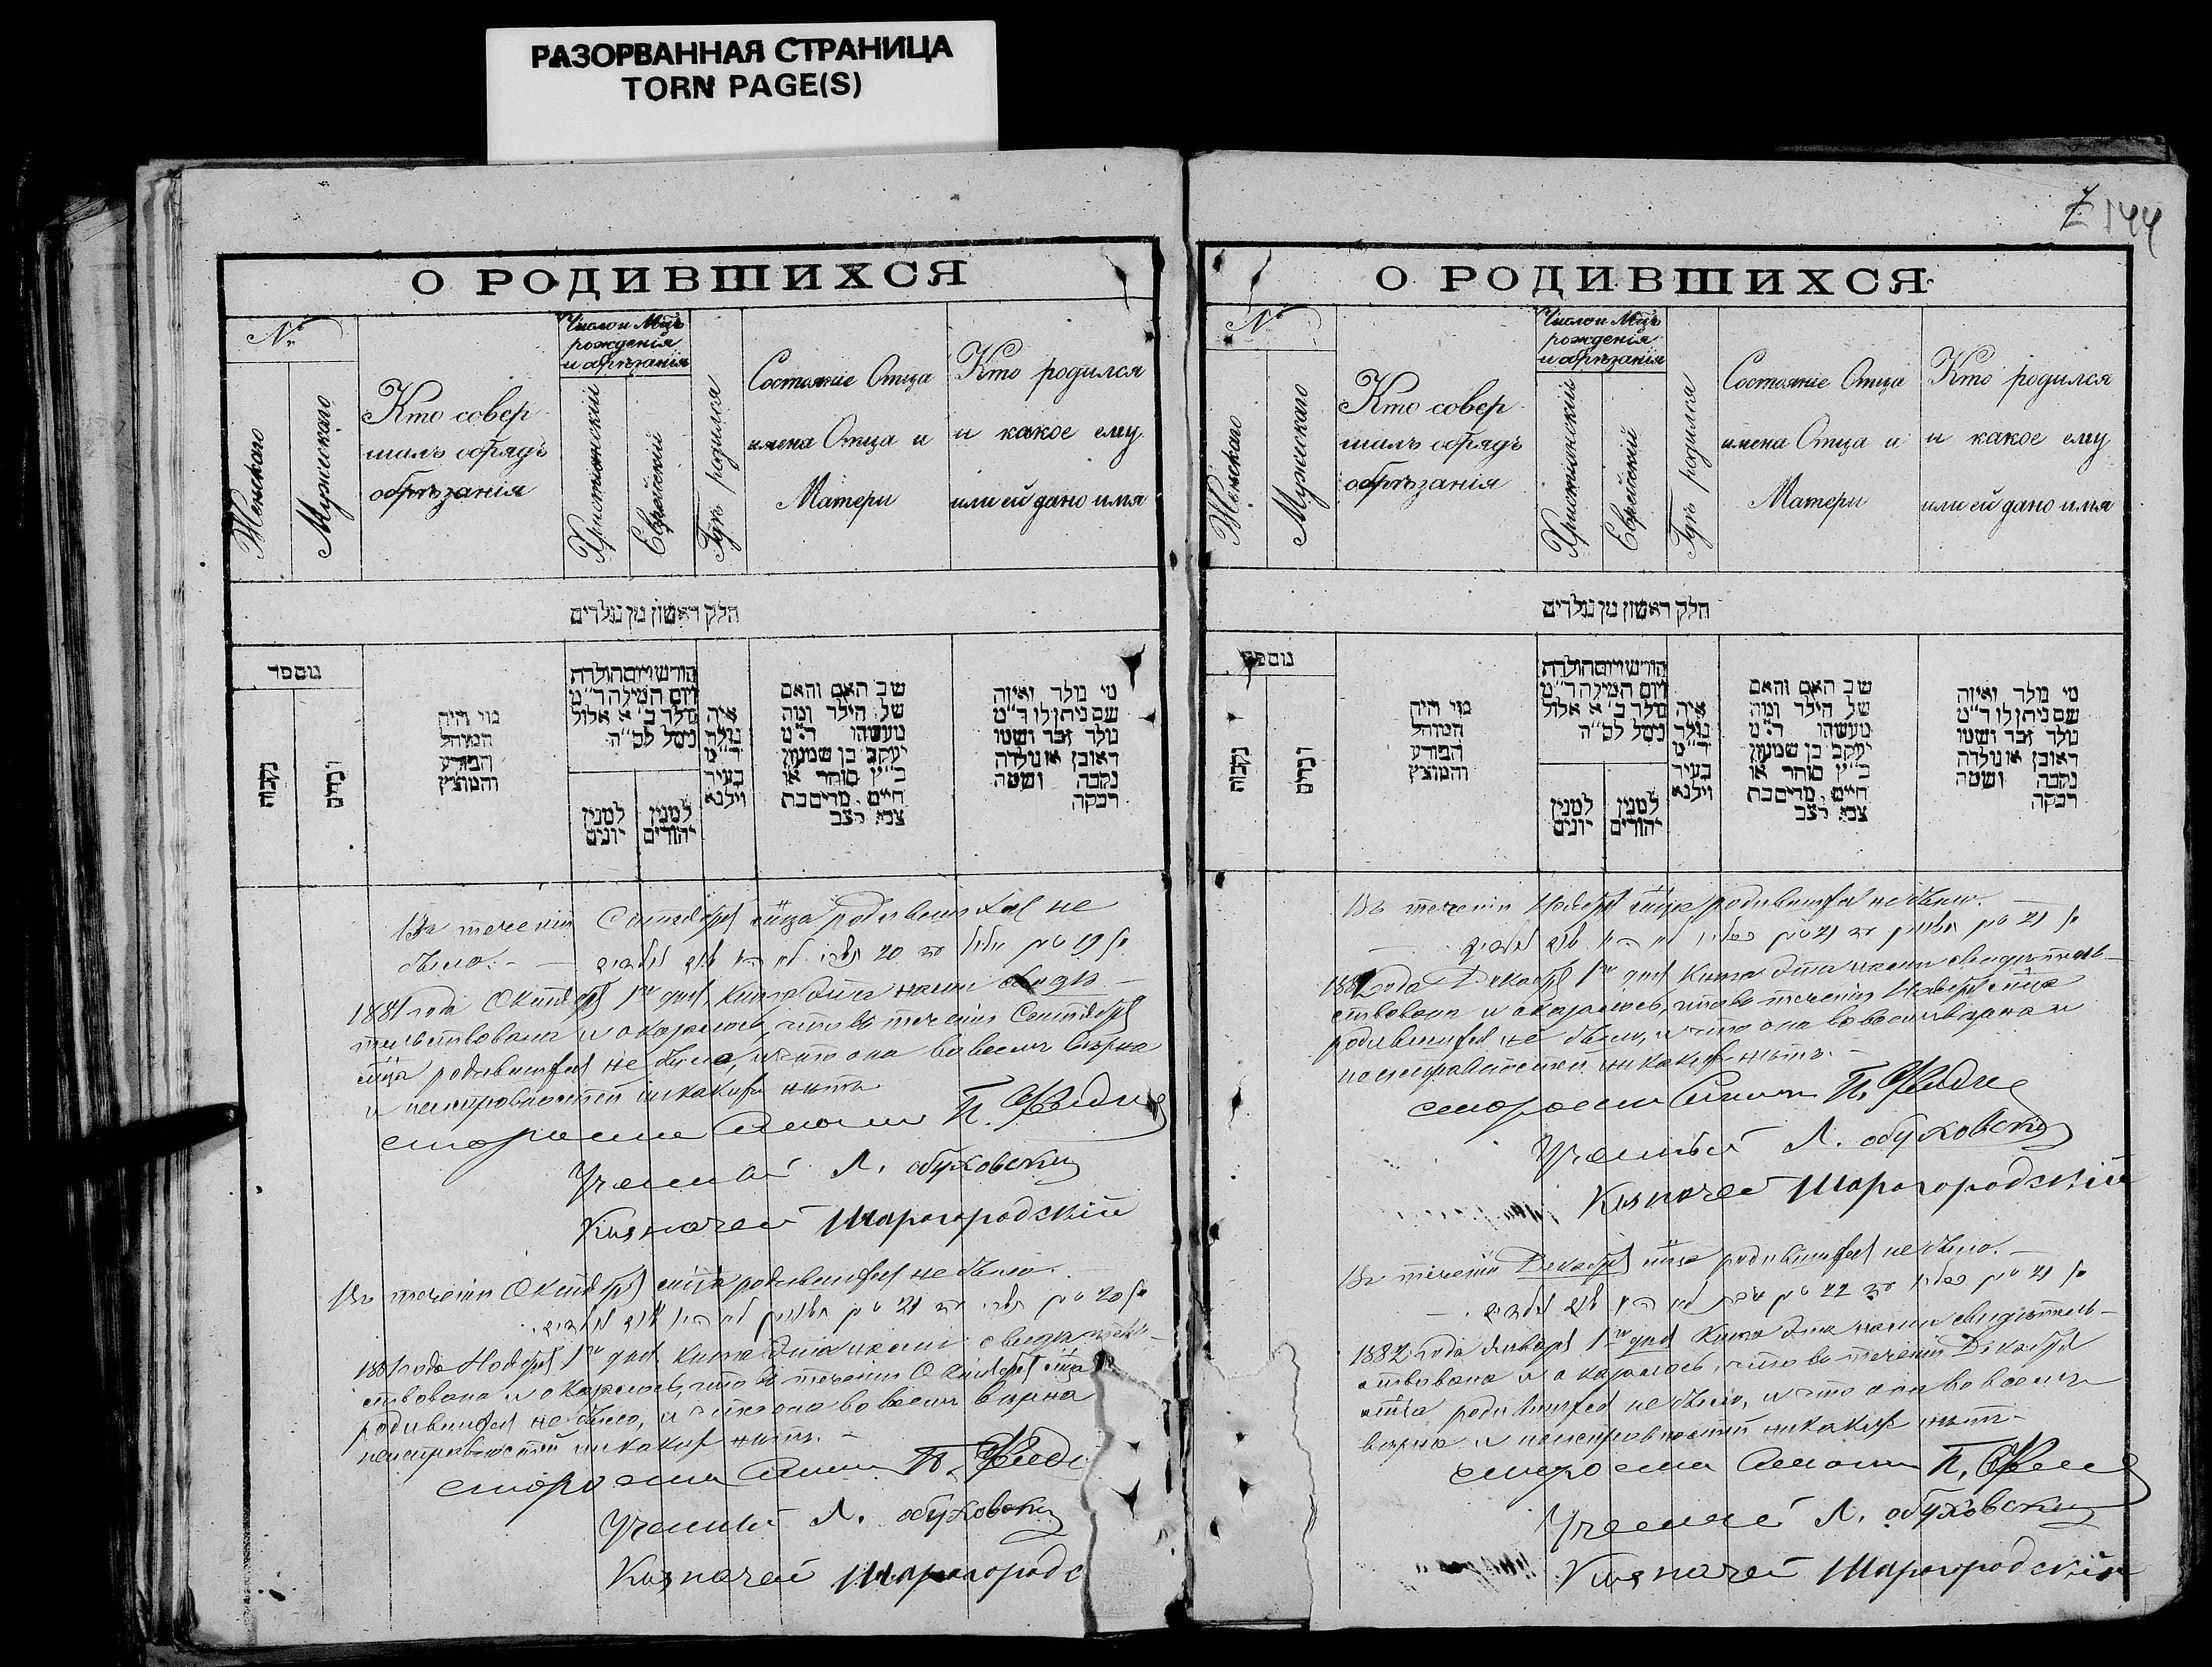 РАЗОРВАННАЯ СТРАНИЦА
TORN PAGE(S)
7
144
О РОДИВШИХСЯ
№
Женскаго
Мужескаго
Кто совер
шилъ обрядъ
обрѣзанія
Число и Мцъ
рожденія
и обрѣзанія
Христіанскій
Еврейскій
Гдѣ родился
Состояніе Отца
имена Отца и
Матери
Кто родился
и какое ему
или ей дано имя
חלק ראשון מן נולדים
מספר
נקבות
זכרים
מי היה
המוהל
הפורע
והמוצץ
חודש ויום הולדת
ויום המילה ד"מ
נולד ב' א אלול
נימל לס"ה
למנין
יונים
למנין
יהודים
איה
נולד
ד"מ
בעיר
וילנא
שב האב והאם
של הילד ומה
מעשהו ד"מ
יעקב בן שמעון
כ"ץ סוחר או
חיים, מרים בת
צבי קצב
מי נולד ואיזה
שם ניתן לו ד"מ
נולד זכר ושמו
ראובן או נולדה
נקבה ושמה
רבקה
Въ теченіи Сентября мѣца родившихся не
было. –
1881 года Октября 1го дня Книга эта нами свидѣ-
тельствована и оказалось, что въ теченіи Сентября
мѣца родившихся не было, и что она во всемъ вѣрна
и неисправностей никакихъ нѣтъ.
Староста П.
Ученый Л. Обуховскій
Казначей Шарогородскій
Въ теченіи Октября мѣца родившихся не было. –
1881 года Ноября 1го дня Книга эта нами свидѣтель-
ствована и оказалось, что въ теченіи Октября мѣца
родившихся не было, и что она во всемъ вѣрна
неисправностей никакихъ нѣтъ. –
Староста П.
Ученый Л. Обуховскій
Казначей Шарогородс
О РОДИВШИХСЯ
№
Женскаго
Мужескаго
Кто совер
шилъ обрядъ
обрѣзанія
Число и Мцъ
рожденія
и обрѣзанія
Христіанскій
Еврейскій
Гдѣ родился
Состояніе Отца
имена Отца и
Матери
Кто родился
и какое ему
или ей дано имя
חלק ראשון מן נולדים
מספר
נקבות
זכרים
מי היה
המוהל
הפורע
והמוצץ
חודש ויום הולדת
ויום המילה ד"מ
נולד ב' א אלול
נימל לס"ה
למנין
יונים
למנין
יהודים
איה
נולד
ד"מ
בעיר
וילנא
שב האב והאם
של הילד ומה
מעשהו ד"מ
יעקב בן שמעון
כ"ץ סוחר או
חיים, מרים בת
צבי קצב
מי נולד ואיזה
שם ניתן לו ד"מ
נולד זכר ושמו
ראובן או נולדה
נקבה ושמה
רבקה
Въ теченіи Ноября мѣца родившихся не было. –
1881 года Декабря 1го дня Книга эта нами свидѣтель-
ствована и оказалось, что въ теченіи Ноября мѣца
родившихся не было, и что она во всемъ вѣрна и
неисправностей никакихъ нѣтъ. –
Староста П.
Ученый Л. Обуховскій
Казначей Шарогородскій
Въ теченіи Декабря мѣца родившихся не было. –
1882 года Января 1го дня Книга эта нами свидѣтель-
ствована и оказалось, что въ теченіи Декабря
мѣца родившихся не было, и что она во всемъ
вѣрна и неисправностей никакихъ нѣтъ –
Староста П.
Ученый Л. Обуховскій
Казначей Шарогородскій